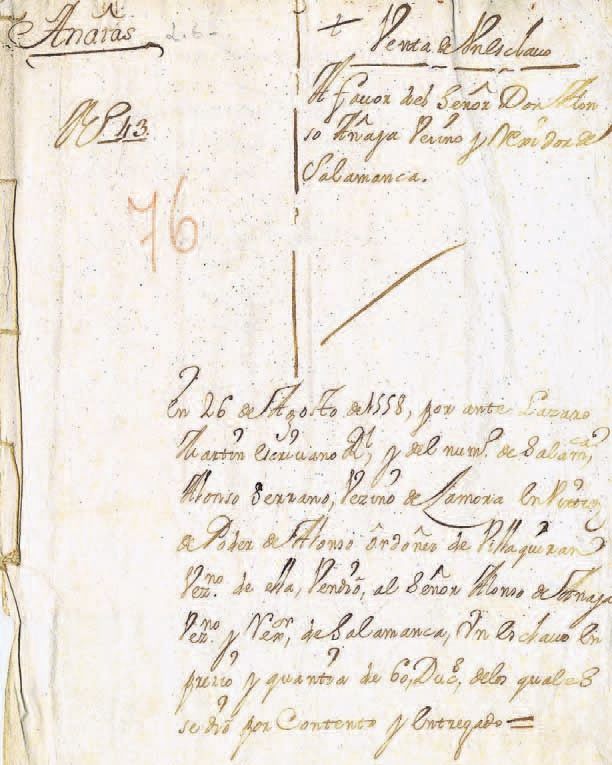 Anaÿas
Nº 43.
76
+ Venta de Vn esclavo
A favor del Señor Don Alon
so Anaya Vezino y Rexidor de
Salamanca.
En 26 de Agosto de 1558, por ante Lazaro
Martin escriuano Rl, y del numº. de Salamca,
Alonso Serrano, Vezino de Zamora en Virtd
de Poder de Alonso Ordoñes de Villaquiran
Vezno. de ella, Vendio, al Señor Alonso de Anaya
Vezno. y Rexor, de Salamanca, Vn esclavo en
prezio y quantia de 60, Ducs, delos quales
se dio por Contento y Entregado =